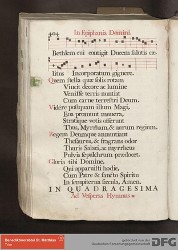 404 In Epiphania Domini
Bethlem cui contigit Ducem salutis cæ-
litus Incorporatum gignere.
Quem stella quæ solis rotam
Vincit decore ac lumine
Venisse terris nuntiat
Cum carne terrestri Deum.
Videre postquam illum Magi,
Eoa promunt munera,
Stratique votis offerunt
Thus, Myrrham, & aurum regium.
Regem Deumque annuntiant
Thesaurus, & fragrans odor
Thuris Sabæi, ac myrrheus
Pulvis sepulchrum prædocet.
Gloria tibi Domine,
Qui apparuisti hodie,
Cum Patre & sancto Spiritu
In sempiterna sæcula, Amen.
IN QUADRAGESIMA
Ad Vesperas Hymnus
Benediktinerabtei St. Matthias
Trier
DFG